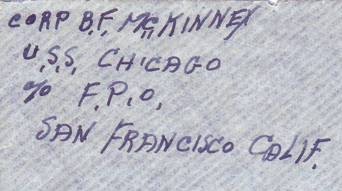 CORP B.F. McKINNEY
U.S.S. CHICAGO
% F.P.O.
SAN FRANCISCO CALIF.